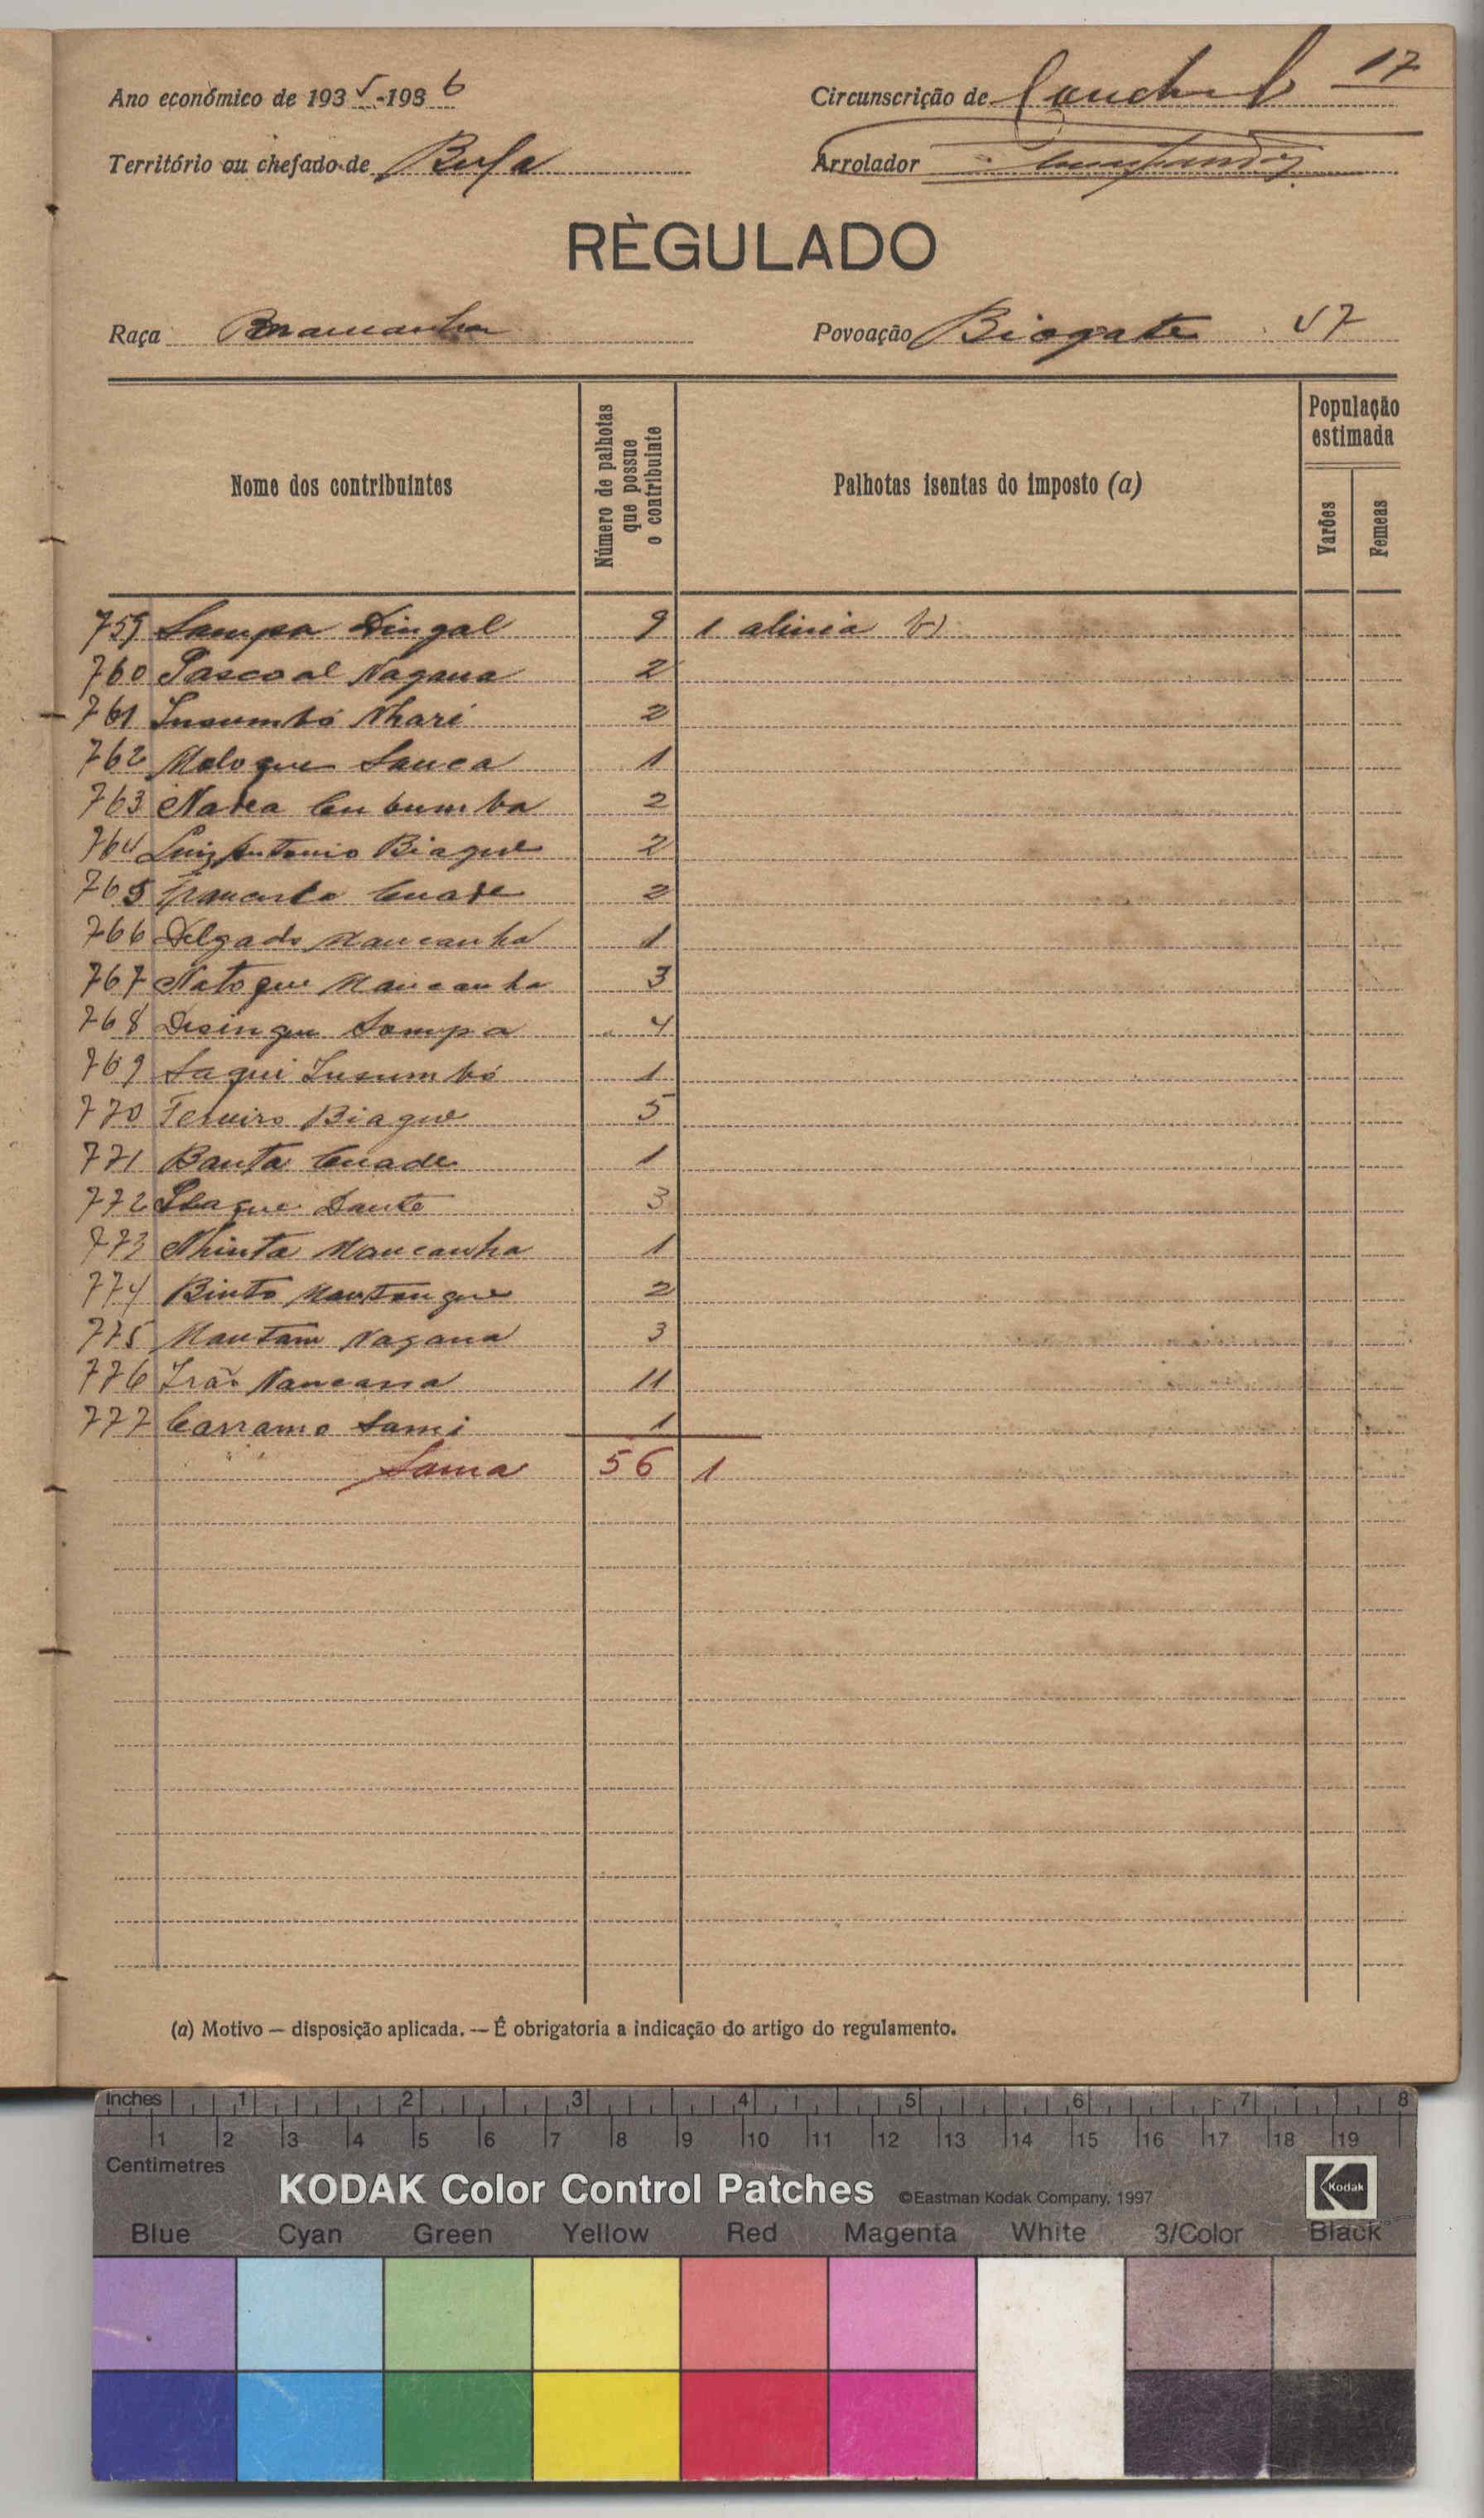 17
Ano económico de 1935-1936
Circunscrição de
Território ou chefado de Bula
Arrolador
RÈGULADO
Raça
Povoação Biogate 57
Nome dos contribuintes
Número de palhotas que possue o contribuinte
Palhotas isentas do imposto (a)
População estimada
Varões
Femeas
759 Sampa Dingal 9 1 alinia b)
760 Pascoal Nagana 2
761 Insumbó Nhari 2
762 Meloque Sanca 1
763 2
764 Luiz Antonio Biague 2
765 Cuade 2
766 Delgado Mancanha 1
767 Natoque Mancanha 3
768 Sampa 4
769 Saqui Insumbó 1
770 Biague 5
771 Banta Cuade 1
772 3
773 Nhinta Mancanha 1
774 Binto Mantangue 2
775 Mantam Nagana 3
776 11
777 Sami 1
Soma 56 1
(a) Motivo — disposição aplicada. — É obrigatoria a indicação do artigo do regulamento.
Inches 1 2 3 4 5 6 7 8
1 2 3 4 5 6 7 8 9 10 11 12 13 14 15 16 17 18 19
Centimetres
KODAK Color Control Patches ©Eastman Kodak Company, 1997 Kodak
Blue Cyan Green Yellow Red Magenta White 3/Color Black